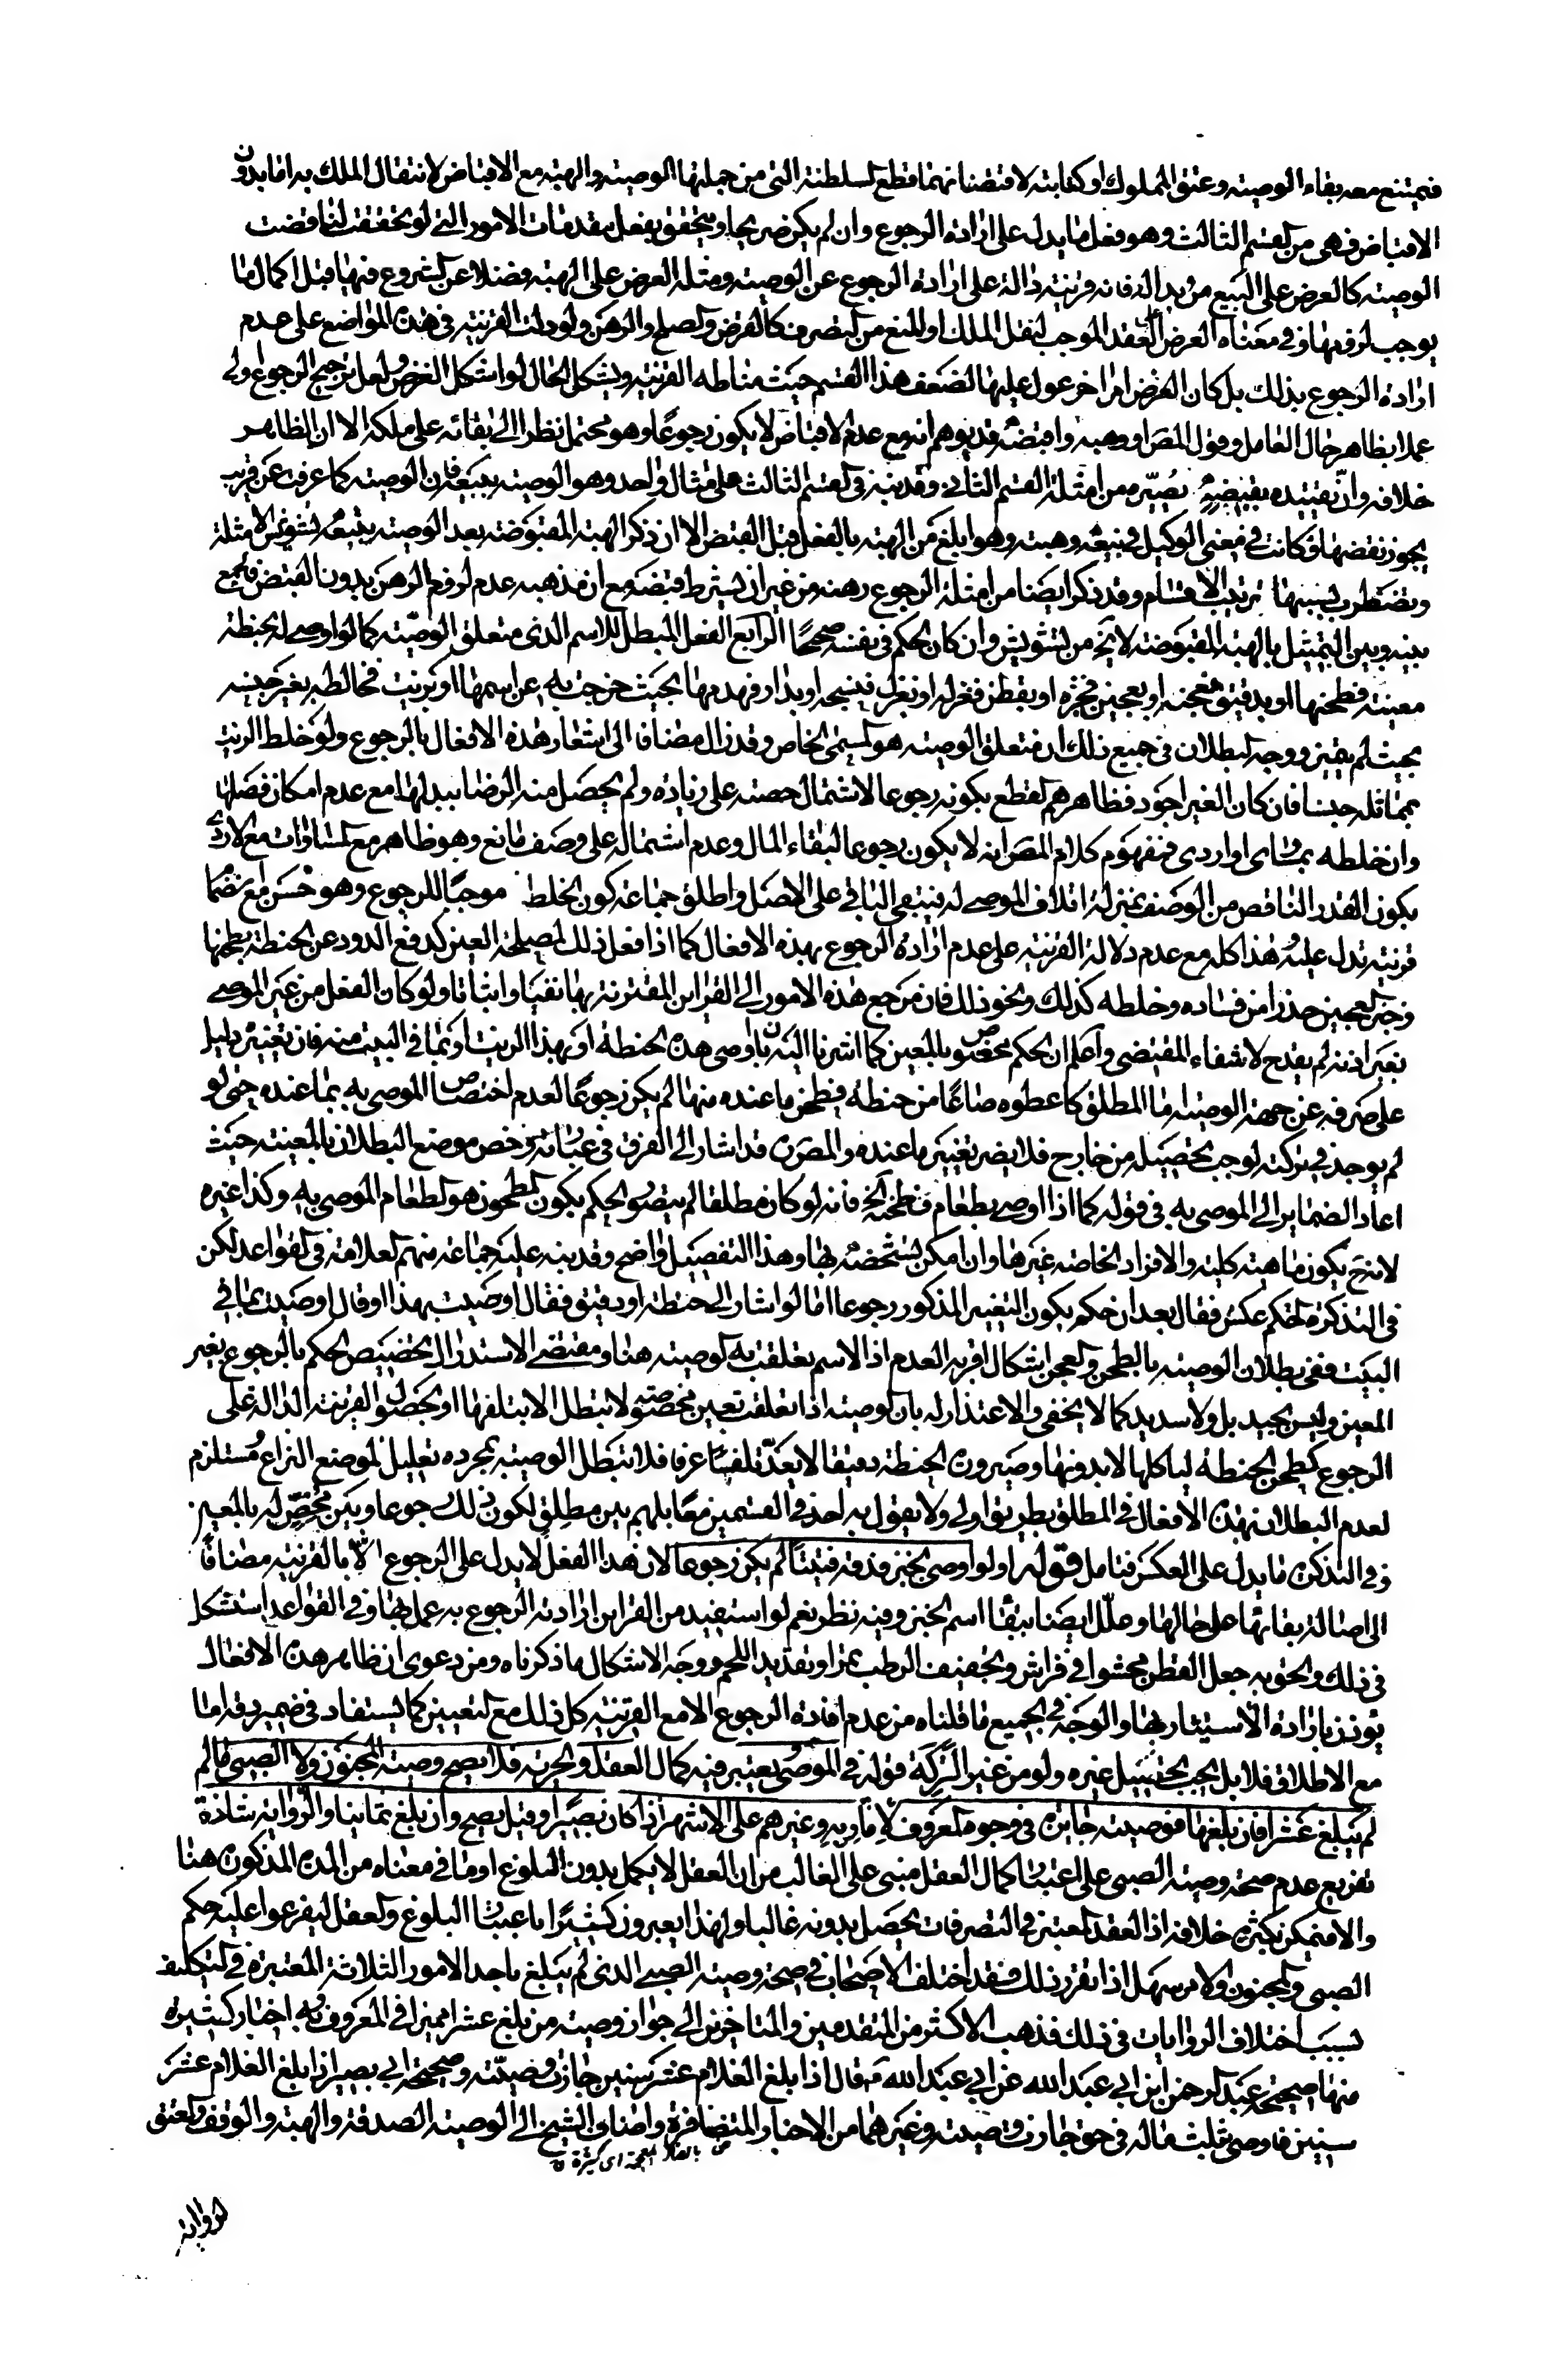 فيمتنع معه بقاء الوصيته وعتق المملوك او كتابته لاقتضائهما قطع السلطنة التى من جملتها الوصيته والهبته مع الاقباض لانتقال الملك به اما بدون
الاقباض فهى من القسم الثالث وهو فعل ما يدل على ارادة الرجوع وان لم يكن صريحا ويتحقق بفعل مقدمات الامور التى لو تحققت لناقضت
الوصيته كالعرض على البيع من يد الة فانه قرينته دالة على ارادة الرجوع عن الوصيته ومثله العرض على الهبته فضلا عن الشروع فيها قبل اكمال ما
يوجب لزومها وفي معناه العرض العقد الموجب لنقل الملك او المنع من التصرف كالقرض والصلح والرهن ولو دلت القرينته فى هذه المواضع على عدم
ارادة الرجوع بذلك بل كان الغرض امرا اخر عول عليها لضعف هذا القسم حيث مناطه القرينته ويشكل الحال لو اشتكل الغرض ولعل ترجيح الرجوع اولى
عملا بظاهر حال العامل وقول المص او وهبه واقبضه قد يوهم انه مع عدم الاقباض لا يكون رجوعا وهو محتمل نظرا الى بقائه على ملكه الا ان الظاهر
خلافه وان تقييده بقبضه يصيره من امثلة القسم الثانى وقد نبه فى القسم الثالث على مثال واحد وهو الوصيته ببيعه فان الوصيته كما عرفت عن قريب
يجوز نقضها فكانت في معنى الوكيل في بيعه وهبته وهو ابلغ من الهبته بالفعل قبل القبض الا ان ذكر الهبته المقبوضته بعد الوصيته ببيعه يشوش الامثلة
ويضطرب بسببها ترتيب الاقسام وقد ذكر ايضا من امثلة الرجوع رهنه من غير ان يشترط قبضه مع ان مذهبه عدم لزوم الرهن بدون القبض فالجمع
بينه وبين التمثيل بالهبته المقبوضته لا يخ من تشويش وان كان الحكم فى نفسه صحيحا الرابع الفعل المبطل للاسم الذى متعلق الوصيته كما لو اوصى له بحنطة
معينته فطحنها او بدقيق فعجنه او بعجين فخبزه او بقطن فغزله او بغزل فنسجه او بدار فهدمها بحيث خرجت به عن اسمها او بزيت فخالطه بغير جنسه
بحيث لم يتميز ووجه البطلان فى جميع ذلك ان متعلق الوصيته هو المسمى الخاص وقد زال مضافا الى اشعار هذه الافعال بالرجوع ولو خلط الزيت
بمماثله جنسا فان كان الغير اجود فظاهرهم القطع بكونه رجوعا لاشتمال حصته على زيادة ولم يحصل منه الرضا ببذلها مع عدم امكان فصلها
وان خلطه بمساوى او اردى فمفهوم كلام المص انه لا يكون رجوعا لبقاء المال وعدم اشتماله على وصف مانع وهو ظاهر مع المساوات مع الاردى
يكون القدر الناقص من الوصف بمنزلة اتلاف الموصى له فيبقى الباقي على الاصل واطلق جماعته كون الخلط موجبا للرجوع وهو حسن مع انضمام
قرينته تدل عليه هذا كله مع عدم دلالة القرينته على عدم ارادة الرجوع بهذه الافعال كما اذا فعل ذلك لمصلحة العين كدفع الدود عن الحنطة بطحنها
وخبز العجين حذرا من فساده وخلطه كذلك ونحو ذلك فان مرجع هذه الامور الى القراين المقترنة بها نفيا واثباتا ولو كان الفعل من غير الموصى
بغير اذنه لم يقدح لانتفاء المقتضى واعلم ان الحكم مختص بالمعين كما اشرنا اليه بان اوصى بهذه الحنطة او بهذا الزيت او بما في البيت منه فان تغييره دليل
على صرفه عن جهة الوصيته اما المطلق كاعطوه صاعا من حنطة فطحن ما عنده منها لم يكن رجوعا لعدم اختصاص الموصى به بما عنده حتى لو
لم يوجد في تركته لوجب تحصيله من خارج فلا يضر تغيير ما عنده والمصره قد اشار الى الفرق فى عبارته وخص موضع البطلان بالمعينته حيث
اعاد الضماير الى الموصى به فى قوله كما اذا اوصى بطعام فطحنه الخ فانه لو كان مطلقا لم يتصور الحكم بكون المطحون هو الطعام الموصى به وكذا غيره
لانه ح يكون ماهيته كليته والافراد الخاصة غيرها وان امكن تشخصه بها وهذا التفصيل واضح وقد نبه عليه جماعته منهم العلامة فى القواعد لكن
فى التذكرة حكم عكس فقال بعد ان حكم بكون التغيير المذكور رجوعا اما لو اشار الى حنطة او دقيق فقال اوصيت بهذا او قال اوصيت بما في
البيت ففى بطلان الوصيته بالطحن والعجن اشكال اقربه العدم اذ الاسم تعلقت به الوصيته هنا ومقتضى الاستدلال تخصيص الحكم بالرجوع بغير
المعين وليس بجيد بل ولا سديد كما لا يخفى والاعتذار له بان الوصيته اذا تعلقت بعين مخصوصته لا تبطل الا بتلفها او بحصول القرينته الدالة على
الرجوع كطحن الحنطة لياكلها لا بدونها وصيرورة الحنطة دقيقا لا يعد تلفا عرفا فلا تبطل الوصيته بمجرده تعليل لموضع النزاع مستلزم
لعدم البطلان بهذه الافعال في المطلق بطريق اولى ولا يقول به احد في القسمين معا بل هم بين مطلق لكون ذلك رجوعا وبين مخصص له بالمعين
وفي التذكرة ما يدل على العكس فتامل قوله ولو اوصى بخبز فدقه فتيتا لم يكن رجوعا لان هذا الفعل لا يدل على الرجوع الا بالقرينته مضافا
الى اصالة بقائها على حالها وعلل ايضا ببقاء اسم الخبز وفيه نظر نعم لو استفيد من القراين ارادته الرجوع به عمل بها وفي القواعد استشكل
فى ذلك والحق به جعل القطن محشوا في فراش وتجفيف الرطب تمرا وتقديد اللحم ووجه الاشكال ما ذكرناه ومن دعوى ان ظاهر هذه الافعال
يؤذن بارادة الاستيثار بها والوجه في الجميع ما قلناه من عدم افادة الرجوع الا مع القرينته كل ذلك مع التعيين كما يستفاد فى ضمير دقه اما
مع الاطلاق فلا بل يجب تحصيل غيره ولو من غير التركة قوله في الموصى ويعتبر فيه كمال العقل والحرية فلا يصح وصيته المجنون ولا الصبى ما لم
لم يبلغ عشرا فان بلغها فوصيته جايزة فى وجوه المعروف لاقاربه وغيرهم على الاشهر اذا كان بصيرا وقيل يصح وان بلغ ثمانيا والرواية شاذة
تفريع عدم صحة وصيته الصبى على اعتبار كمال العقل مبنى على الغالب من ان العقل لا يكمل بدون البلوغ او ما فى معناه من المدة المذكورة هنا
والا فيمكن بكثرة خلافه اذ العقد المعتبر في التصرفات يحصل بدونه غالبا ولهذا يعبرون كثيرا باعتبار البلوغ والعقل ليفرعوا عليه حكم
الصبى والمجنون والامر سهل اذا تقرر ذلك فقد اختلف الاصحاب في صحة وصيته الصبى الذى لم يبلغ باحد الامور الثلاثة المعتبرة في التكليف
بسبب اختلاف الروايات فى ذلك فذهب الاكثر من المتقدمين والمتاخرين الى جواز وصيته من بلغ عشرا مميزا في المعروف وبه اخبار كثيرة
منها صحيحة عبد الرحمن ابن ابي عبد الله عن ابي عبد الله ع قال اذا بلغ الغلام عشر سنين جازت وصيته وصحيحة ابي بصير اذا بلغ الغلام عشر
سنين فاوصى بثلث ماله فى حق جازت وصيته وغيرهما من الاخبار المتضافرة واضاف الشيخ الى الوصيته الصدقة والهبته والوقف والعتق
بالضاد المعجمة اى كثيرة
لرواية